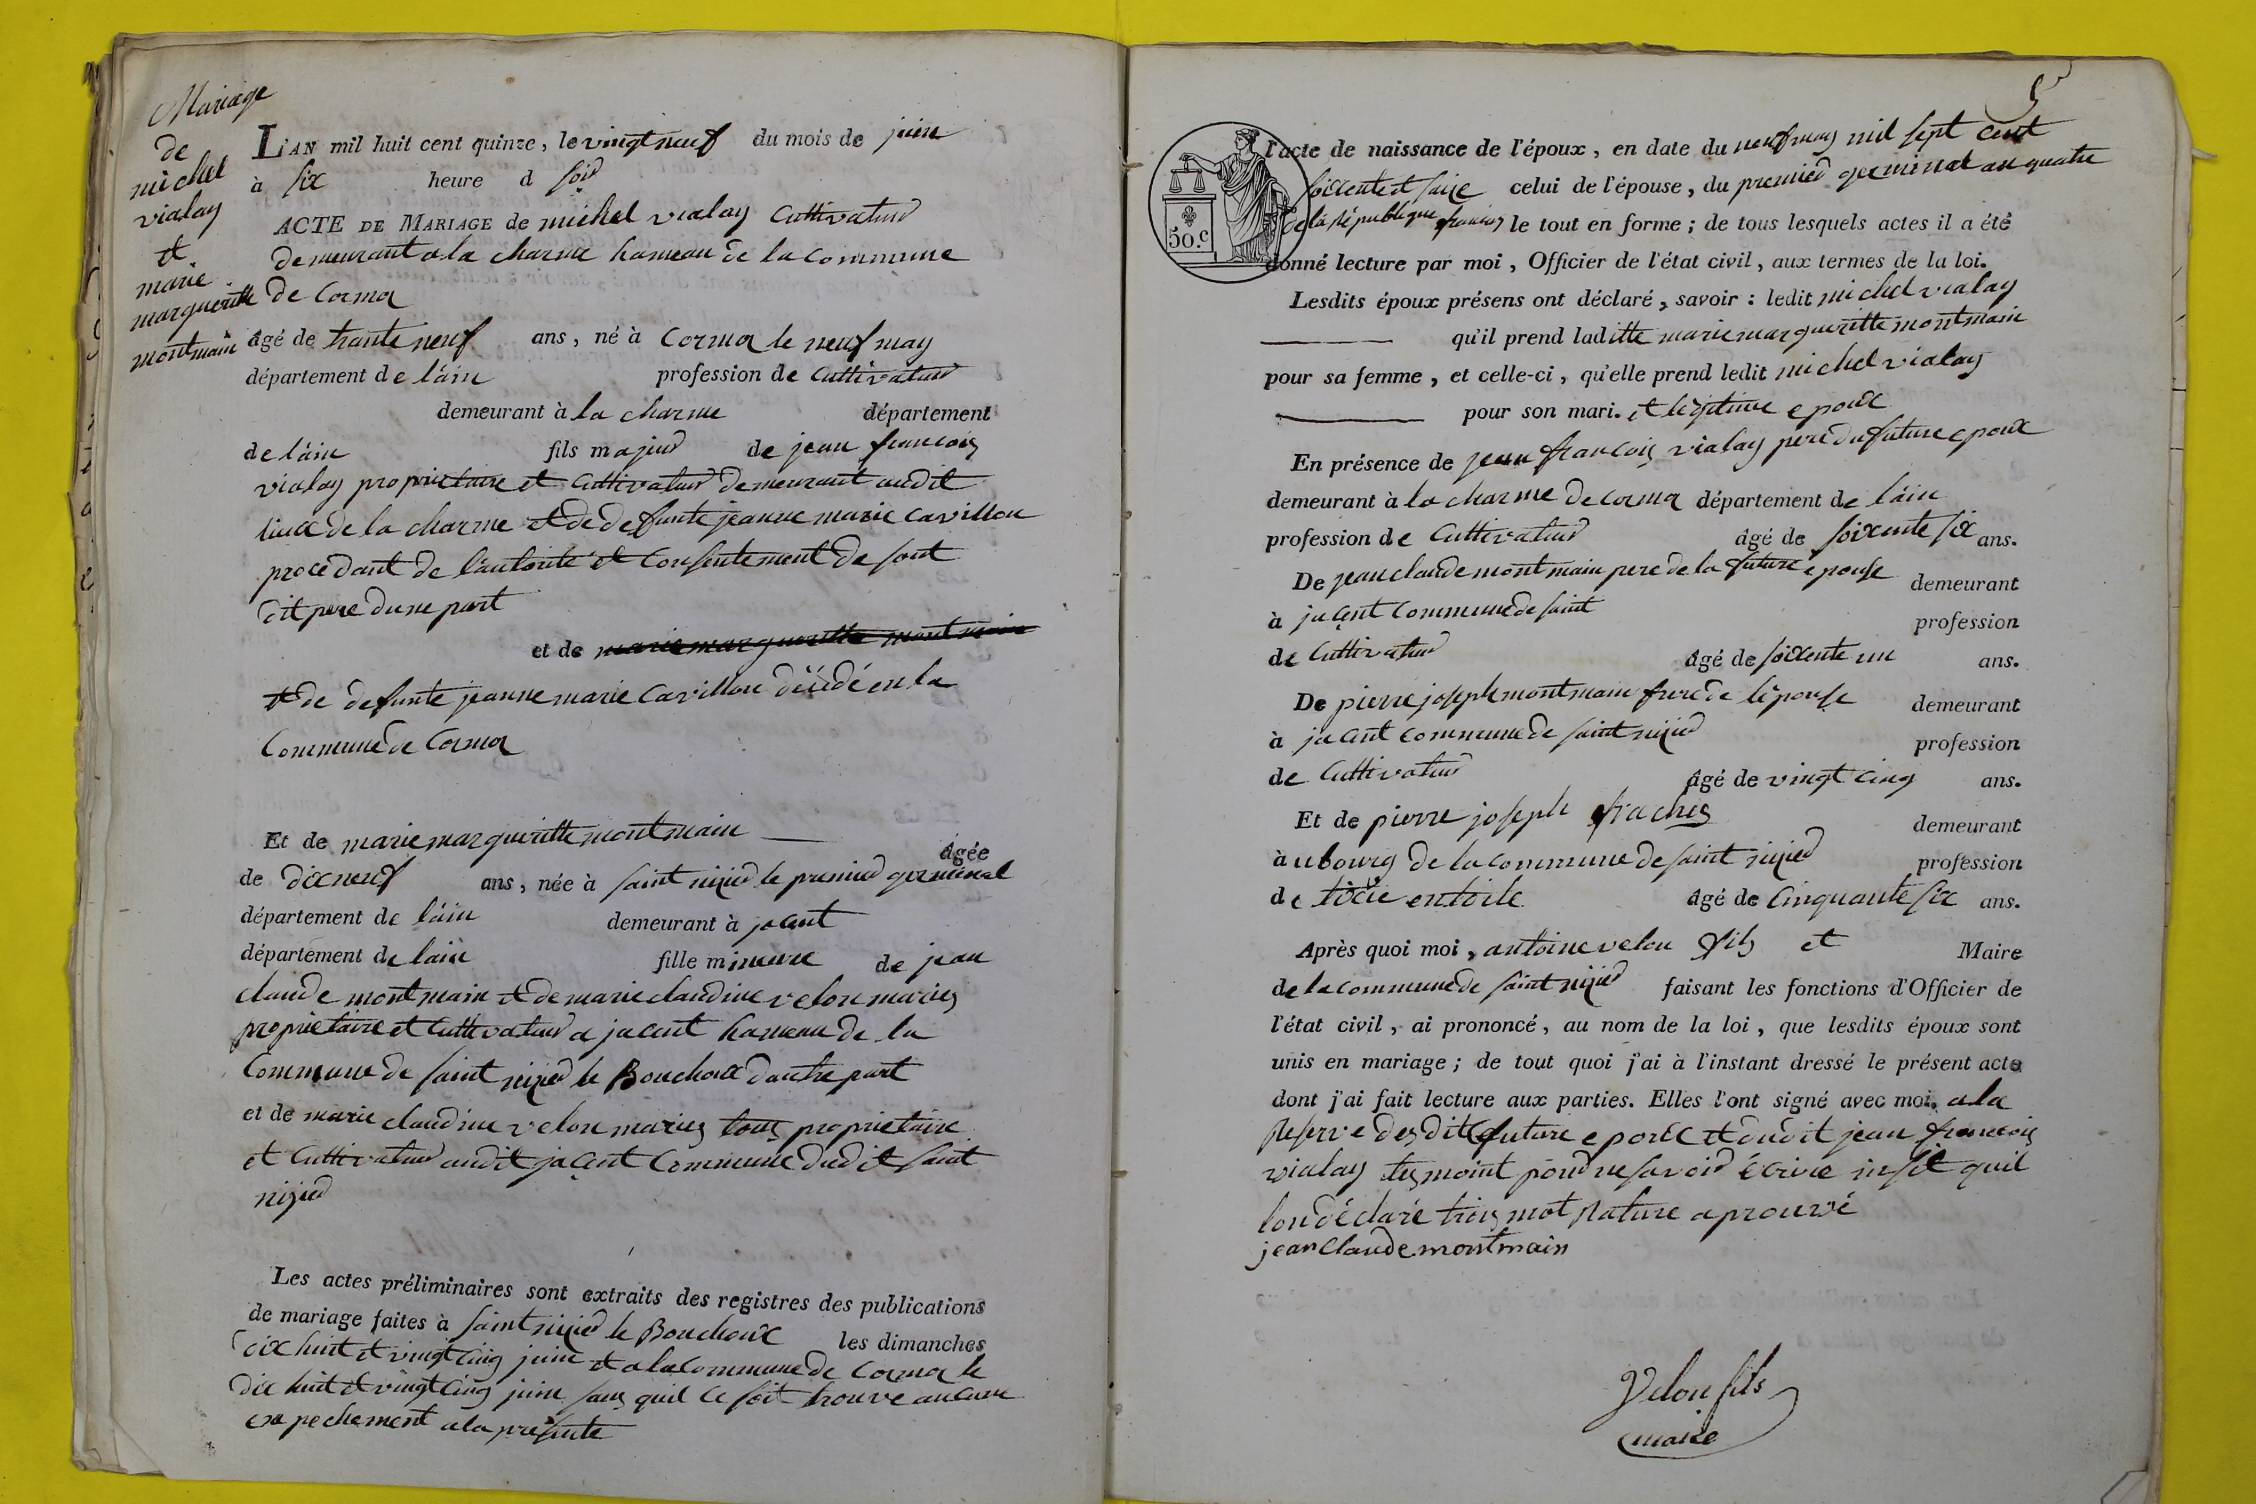 Mariage
de
michel
vialay
et
marie
margueritte
montmain
L'AN mil huit cent quinze, le vingt neuf du mois de juin
à six heure d soir
ACTE DE MARIAGE de michel vialay Cultivateur
demeurant a la charme hameau de la commune
de Cormoz
âgé de trante neuf ans, né à Cormoz le neuf may
département de láin profession de Cultivateur
demeurant à la charme département
de láin fils majeur de jean francois
vialay proprietaire et Cultivateur demeurant audit
lieux de la charme et de defunte jeanne marie Cavillon
procedant de láutorité et Consentement de sont
dit pere dune part
et de marie margueritte montmain
et de defunte jeanne marie Cavillon décédé en la
Commune de Cormoz
Et de marie margueritte montmain âgée
de dix neuf ans, née à saint nizier le premier germinal
département de láin demeurant à jacent
département de láin fille mineure de jean
claude montmain et de marie claudine velon mariez
proprietaire et Cultivateur a jacent hameau de la
Commune de saint nizier le Bouchoux dautre part
et de marie claudine velon mariez tous proprietaire
et Cultivateur audit jacent Commune dudit saint
nizier
Les actes préliminaires sont extraits des registres des publications
de mariage faites à saint nizier le Bouchoux les dimanches
dix huit et vingt cinq juin et a la commune de Cormoz le
dix huit et vingt cinq juin sans quil ce soit trouve aucune
expechement a la presente
5
50.c
l'acte de naissance de l'époux, en date du neuf may mil sept cent
soixente et saize celui de l'épouse, du premier germinal an quatre
de la république francois le tout en forme; de tous lesquels actes il a été
donné lecture par moi, Officier de l'état civil, aux termes de la loi.
Lesdits époux présens ont déclaré, savoir: ledit michel vialay
qu'il prend laditte marie margueritte montmain
pour sa femme, et celle-ci, qu'elle prend ledit michel vialay
pour son mari. et légitime epoux
En présence de jean francois vialay pere du future epoux
demeurant à la charme de cormoz département de láin
profession de Cultivateur âgé de soixente six ans.
De jean claude montmain pere de la future epouse demeurant
à jacent Commune de saint profession
de Cultivateur âgé de soixente un ans.
De pierre joseph montmain frere de lépouse demeurant
à jacent commune de saint nizier profession
de Cultivateur âgé de vingt cinq ans.
Et de pierre joseph demeurant
à u bourg de la commune de saint nizier profession
de tixie en toile âgé de Cinquante six ans.
Après quoi moi, antoine velon fils et Maire
de la commune de saint nizier faisant les fonctions d'Officier de
l'état civil, ai prononcé, au nom de la loi, que lesdits époux sont
unis en mariage; de tout quoi j'ai à l'instant dressé le présent acte
dont j'ai fait lecture aux parties. Elles l'ont signé avec moi. a la
Reserve des dit future epoux et dudit jean francois
vialay temoint pour ne savoir écrire insit quil
lon déclaré trois mot Rature aprouvé
jean Claude montmain
Velon fils
maire